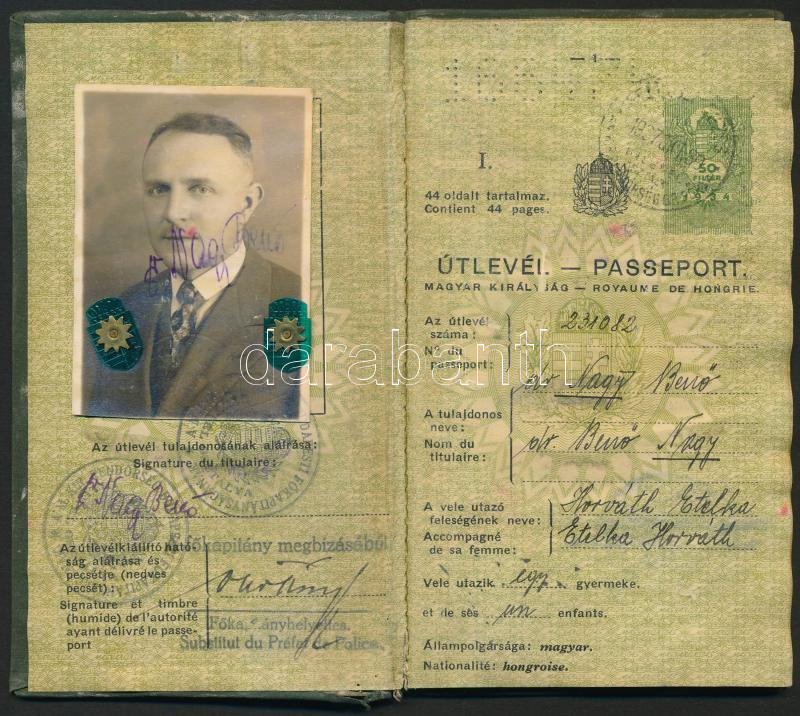 Nagy Benő
Az útlevél tulajdonosának aláírása:
Signature du titulaire:
Dr Nagy Benő
Az útlevélkiállító ható-
ság aláírása és
pecsétje (nedves
pecsét):
Signature et timbre
(humide) de l'autorité
ayant délivré le passe-
port
főkapitány megbizásából
Főkapitányhelyettes.
Substitut du Préfet de Police.
— 1 —
I.
44 oldalt tartalmaz.
Contient 44 pages.
50
FILLÉR
1934
ÚTLEVÉL. — PASSEPORT.
MAGYAR KIRÁLYSÁG — ROYAUME DE HONGRIE.
Az útlevél
száma:
No du
passeport:
231082
A tulajdonos
neve:
Nom du
titulaire:
dr Nagy Benő
dr Benő Nagy
A vele utazó
feleségének neve:
Accompagné
de sa femme:
Horváth Etelka
Etelka Horváth
Vele utazik egy gyermeke.
et de ses un enfants.
Állampolgársága: magyar.
Nationalité: hongroise.
darabanth